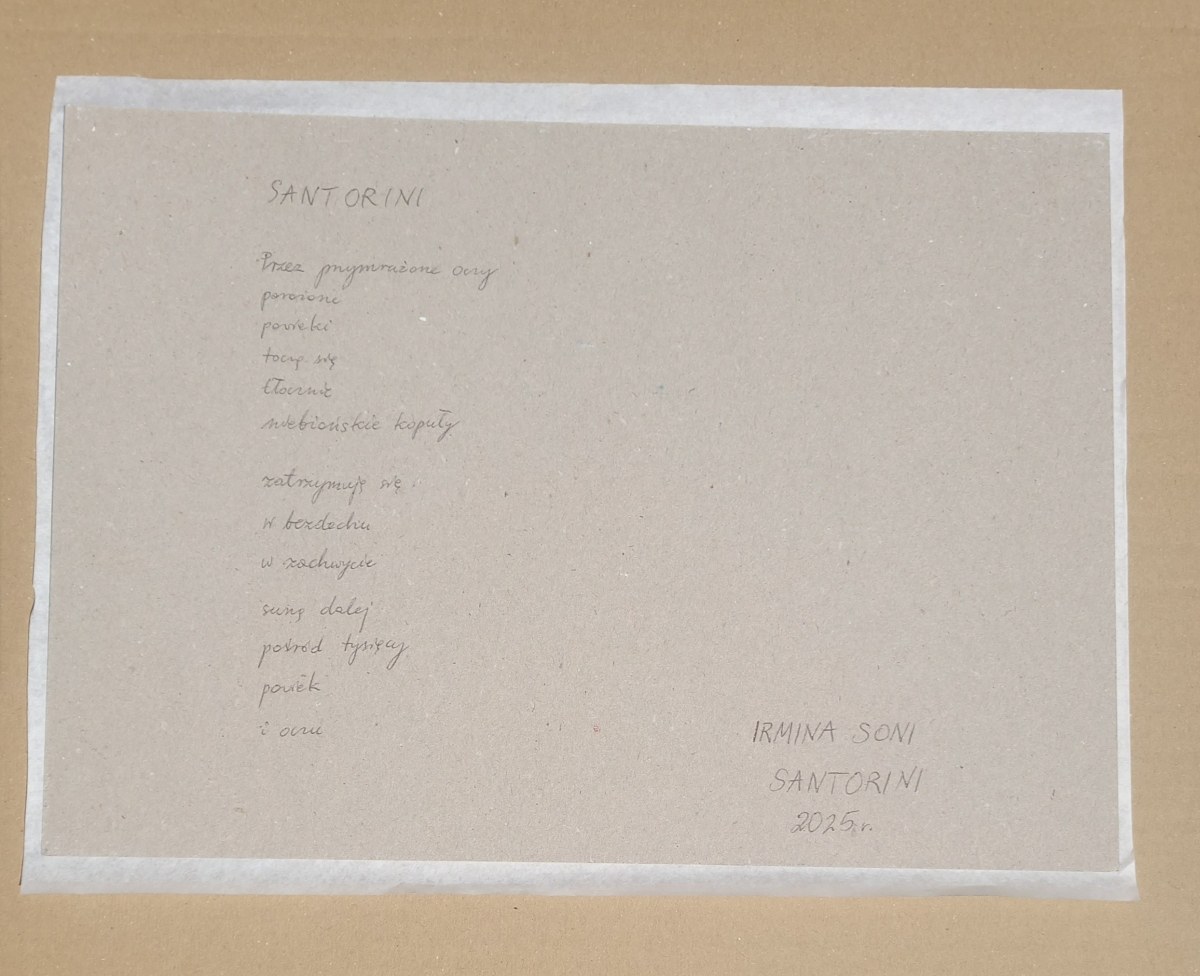 SANTORINI
Przez przymrużone oczy
powieki
toczę się
niebiańskie kopuły
zatrzymuję się
w bezdechu
w zachwycie
sunę dalej
pośród tysięcy
powiek
i oczu
IRMINA SONI
SANTORINI
2025 r.